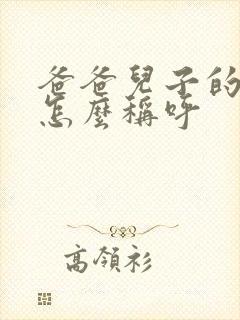 爸爸兒子的
怎麼稱呼
高領衫